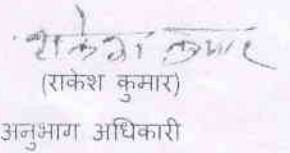 राकेश कुमार
(राकेश कुमार)
अनुभाग अधिकारी